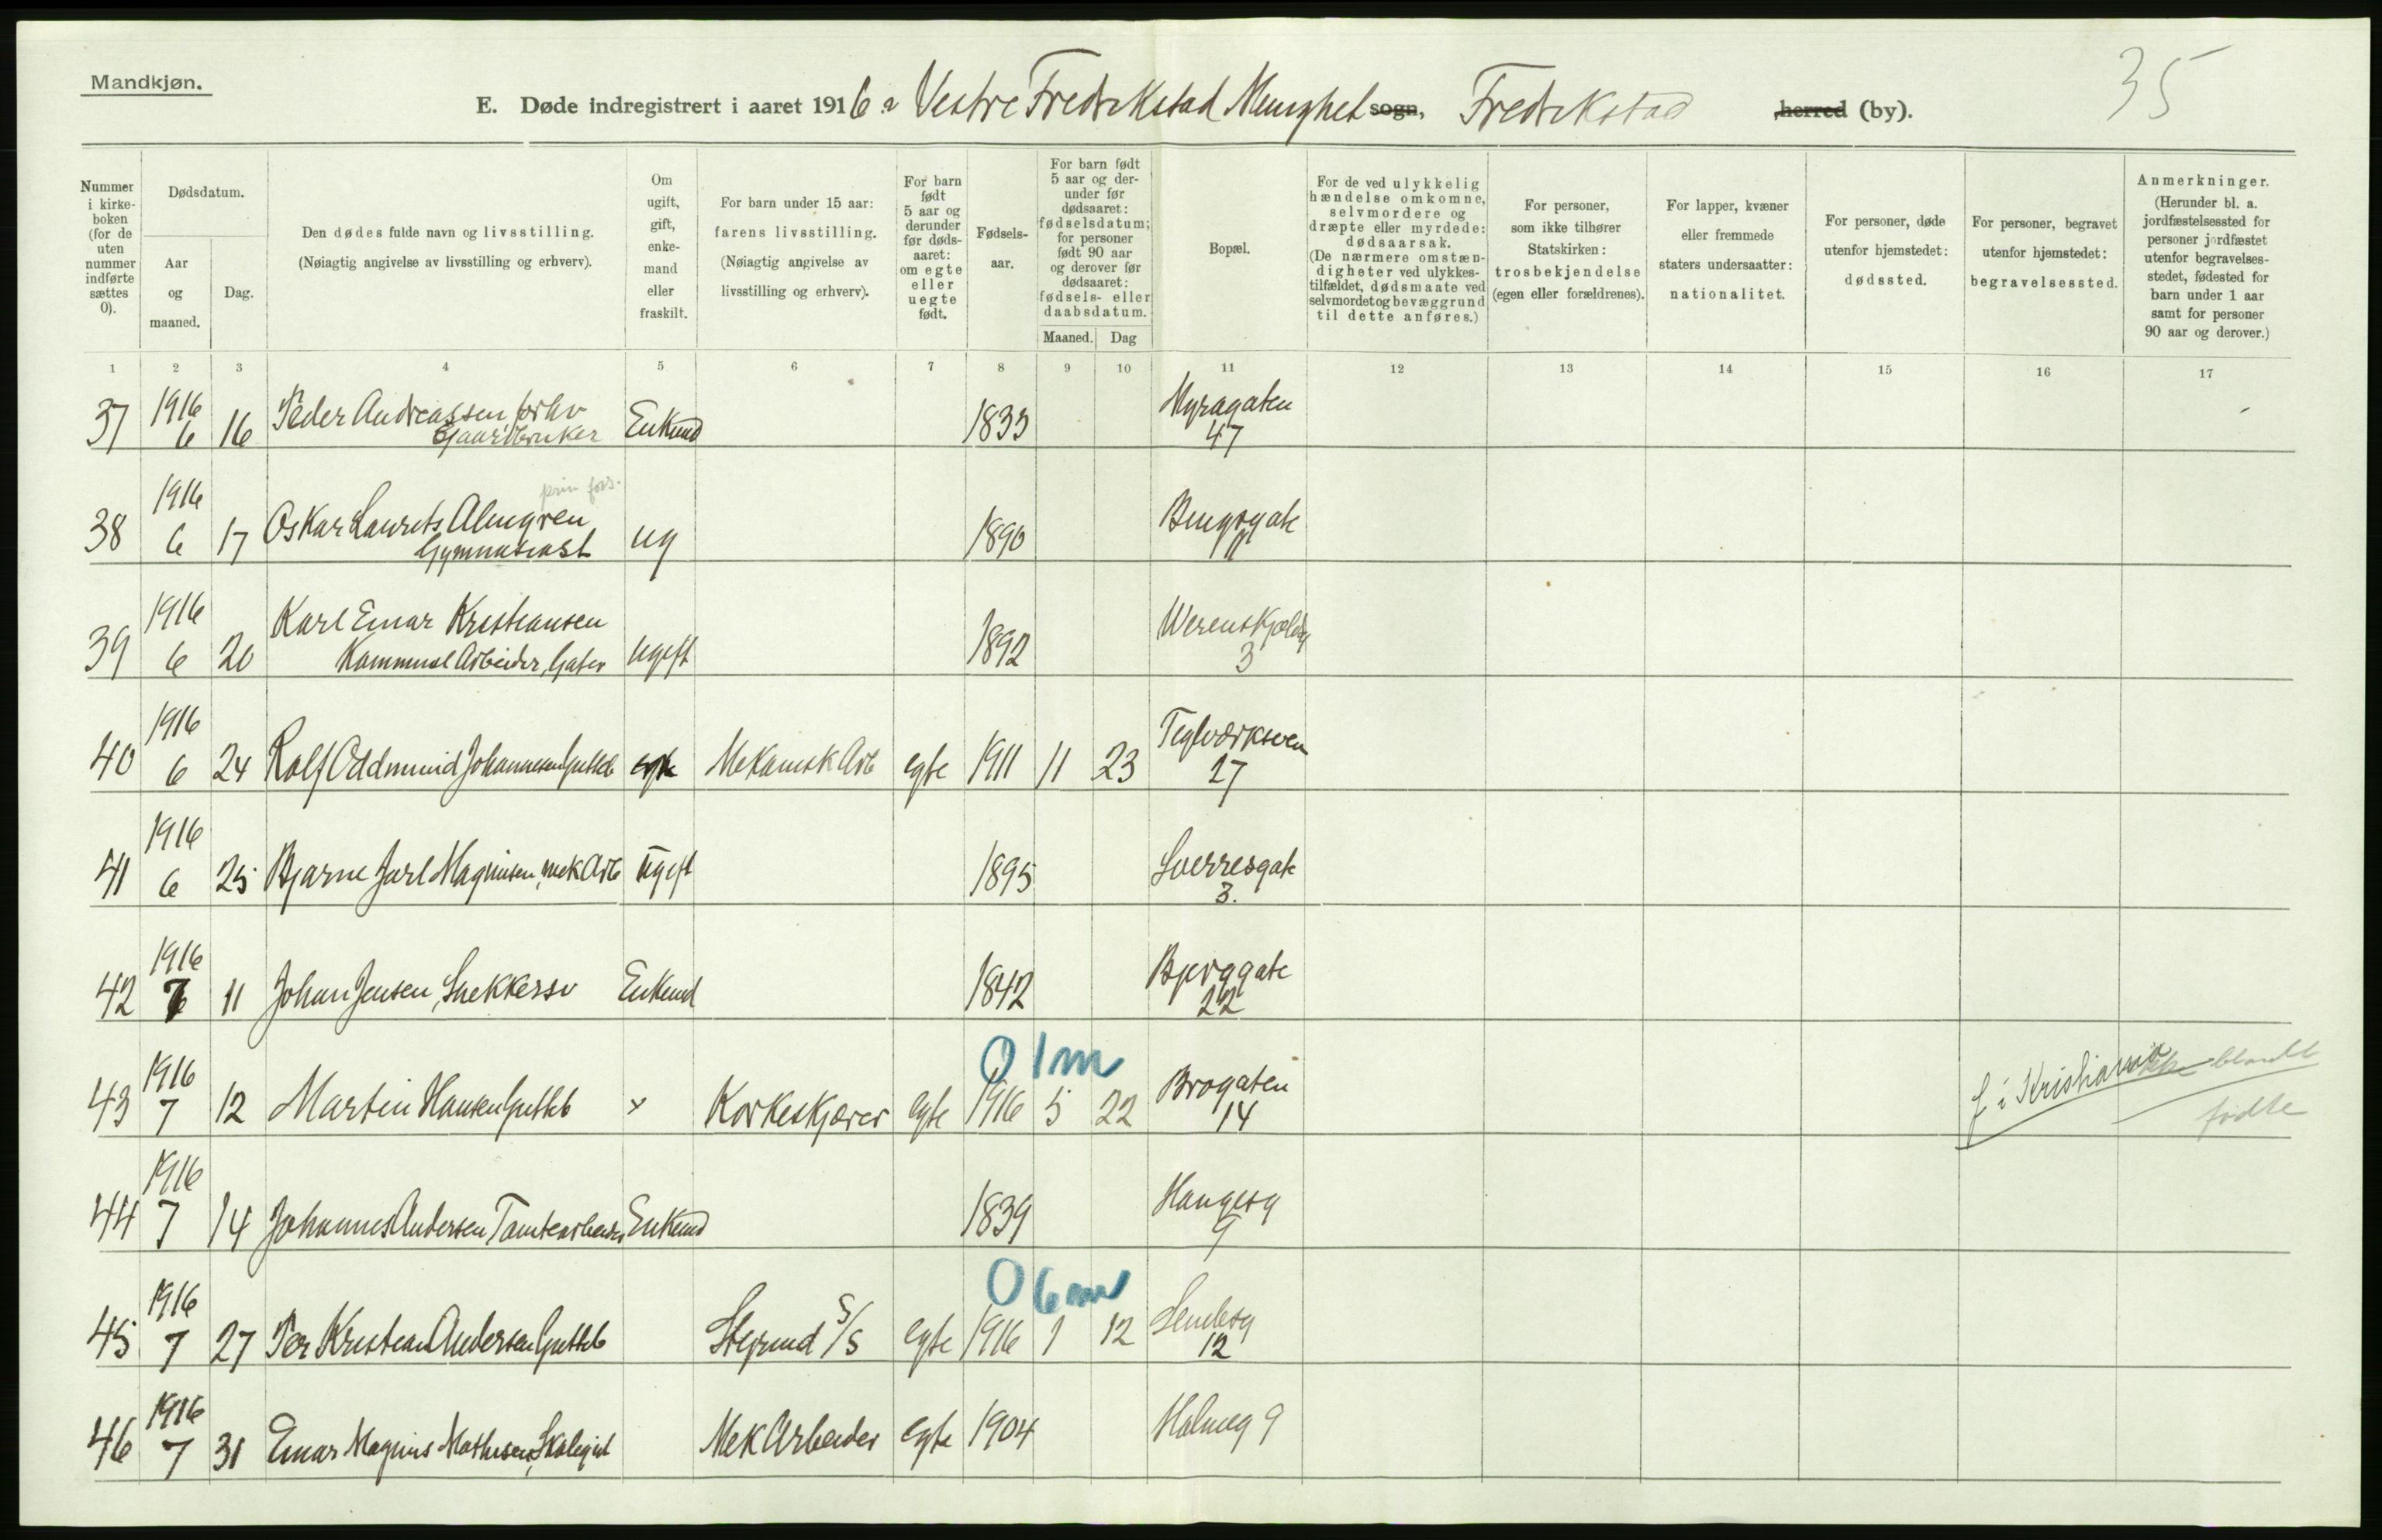 Mandkjøn.
35
E. Døde indregistrert i aaret 1916 i Vestre Fredrikstad Menighet sogn, Fredrikstad herred (by).
Nummer i kirke-boken (for de uten nummer indførte sættes 0).
Dødsdatum.
Aar og maaned.
Dag.
Den dødes fulde navn og livsstilling.
(Nøiagtig angivelse av livsstilling og erhverv).
Om ugift, gift, enke-mand eller fraskilt.
For barn under 15 aar: farens livsstilling.
(Nøiagtig angivelse av livsstilling og erhverv).
For barn født 5 aar og derunder før døds-aaret: om egte eller uegte født.
Fødsels-aar.
For barn født 5 aar og der-under før dødsaaret: fødselsdatum; for personer født 90 aar og derover før dødsaaret: fødsels- eller daabsdatum.
Maaned. Dag
Bopæl.
For de ved ulykkelig hændelse omkomne, selvmordere og dræpte eller myrdede: dødsaarsak.
(De nærmere omstæn-digheter ved ulykkes-tilfældet, dødsmaate ved selvmordet og bevæggrund til dette anføres.)
For personer, som ikke tilhører Statskirken: trosbekjendelse (egen eller forældrenes).
For lapper, kvæner eller fremmede staters undersaatter: nationalitet.
For personer, døde utenfor hjemstedet: dødssted.
For personer, begravet utenfor hjemstedet: begravelsessted.
Anmerkninger.
(Herunder bl. a. jordfæstelsessted for personer jordfæstet utenfor begravelses-stedet, fødested for barn under 1 aar samt for personer 90 aar og derover.)
1 2 3 4 5 6 7 8 9 10 11 12 13 14 15 16 17
37 1916 6 16 Peder Andreassen, forhv Gaardbruker Enkmd 1833 Myragaten 47
38 1916 6 17 Oskar Laurits Almgren Gymnasiast ug 1890
39 1916 6 20 Karl Einar Kristiansen Kommunl Arbeider, Gater ugift 1892 Werenskjoldsg 3
40 1916 6 24 Rolf Oddmund Johannesen Gutteb egte Mekanisk Arb egte 1911 11 23 Teglværksveien 27
41 1916 6 25 Bjarne Jarl Magnusen, mek Arb Ugift 1895 Sverresgate 3.
42 1916 7 11 Johan Jensen, Snekkersv Enkemd 1842 Bjerggate 22
0 1m
43 1916 7 12 Martin Hansen Gutteb x Korkeskjærer egte 1916 5 22 Brogaten 14 f i Kristiania ikke blandt fødte
44 1916 7 14 Johannes Andersen Tomtearbeider Enkemd 1839 Haugesg 9
0 6m
45 1916 7 27 Per Kristian Andersen Gutteb S/S egte 1916 1 12 12
46 1916 7 31 Einar Magnus Mathisen, Skolegut Mek Arbeider egte 1904 Holmeg 9